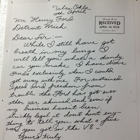 Tulsa Okla
10th April
Mr. Henry Ford
Detroit Mich.
Dear Sir:—
While I still have got
breath in my lungs I
will tell you what a dandy
car you make. I have drove
Fords exclusivly when I could
get away with one. For sustained
speed and freedom from
trouble the Ford has got ever
other car skinned and even if
my business hasen't been
strickly legal it don't hurt eny
thing to tell you what a fine
car you got in the V8 -
Yours truly
RECEIVED